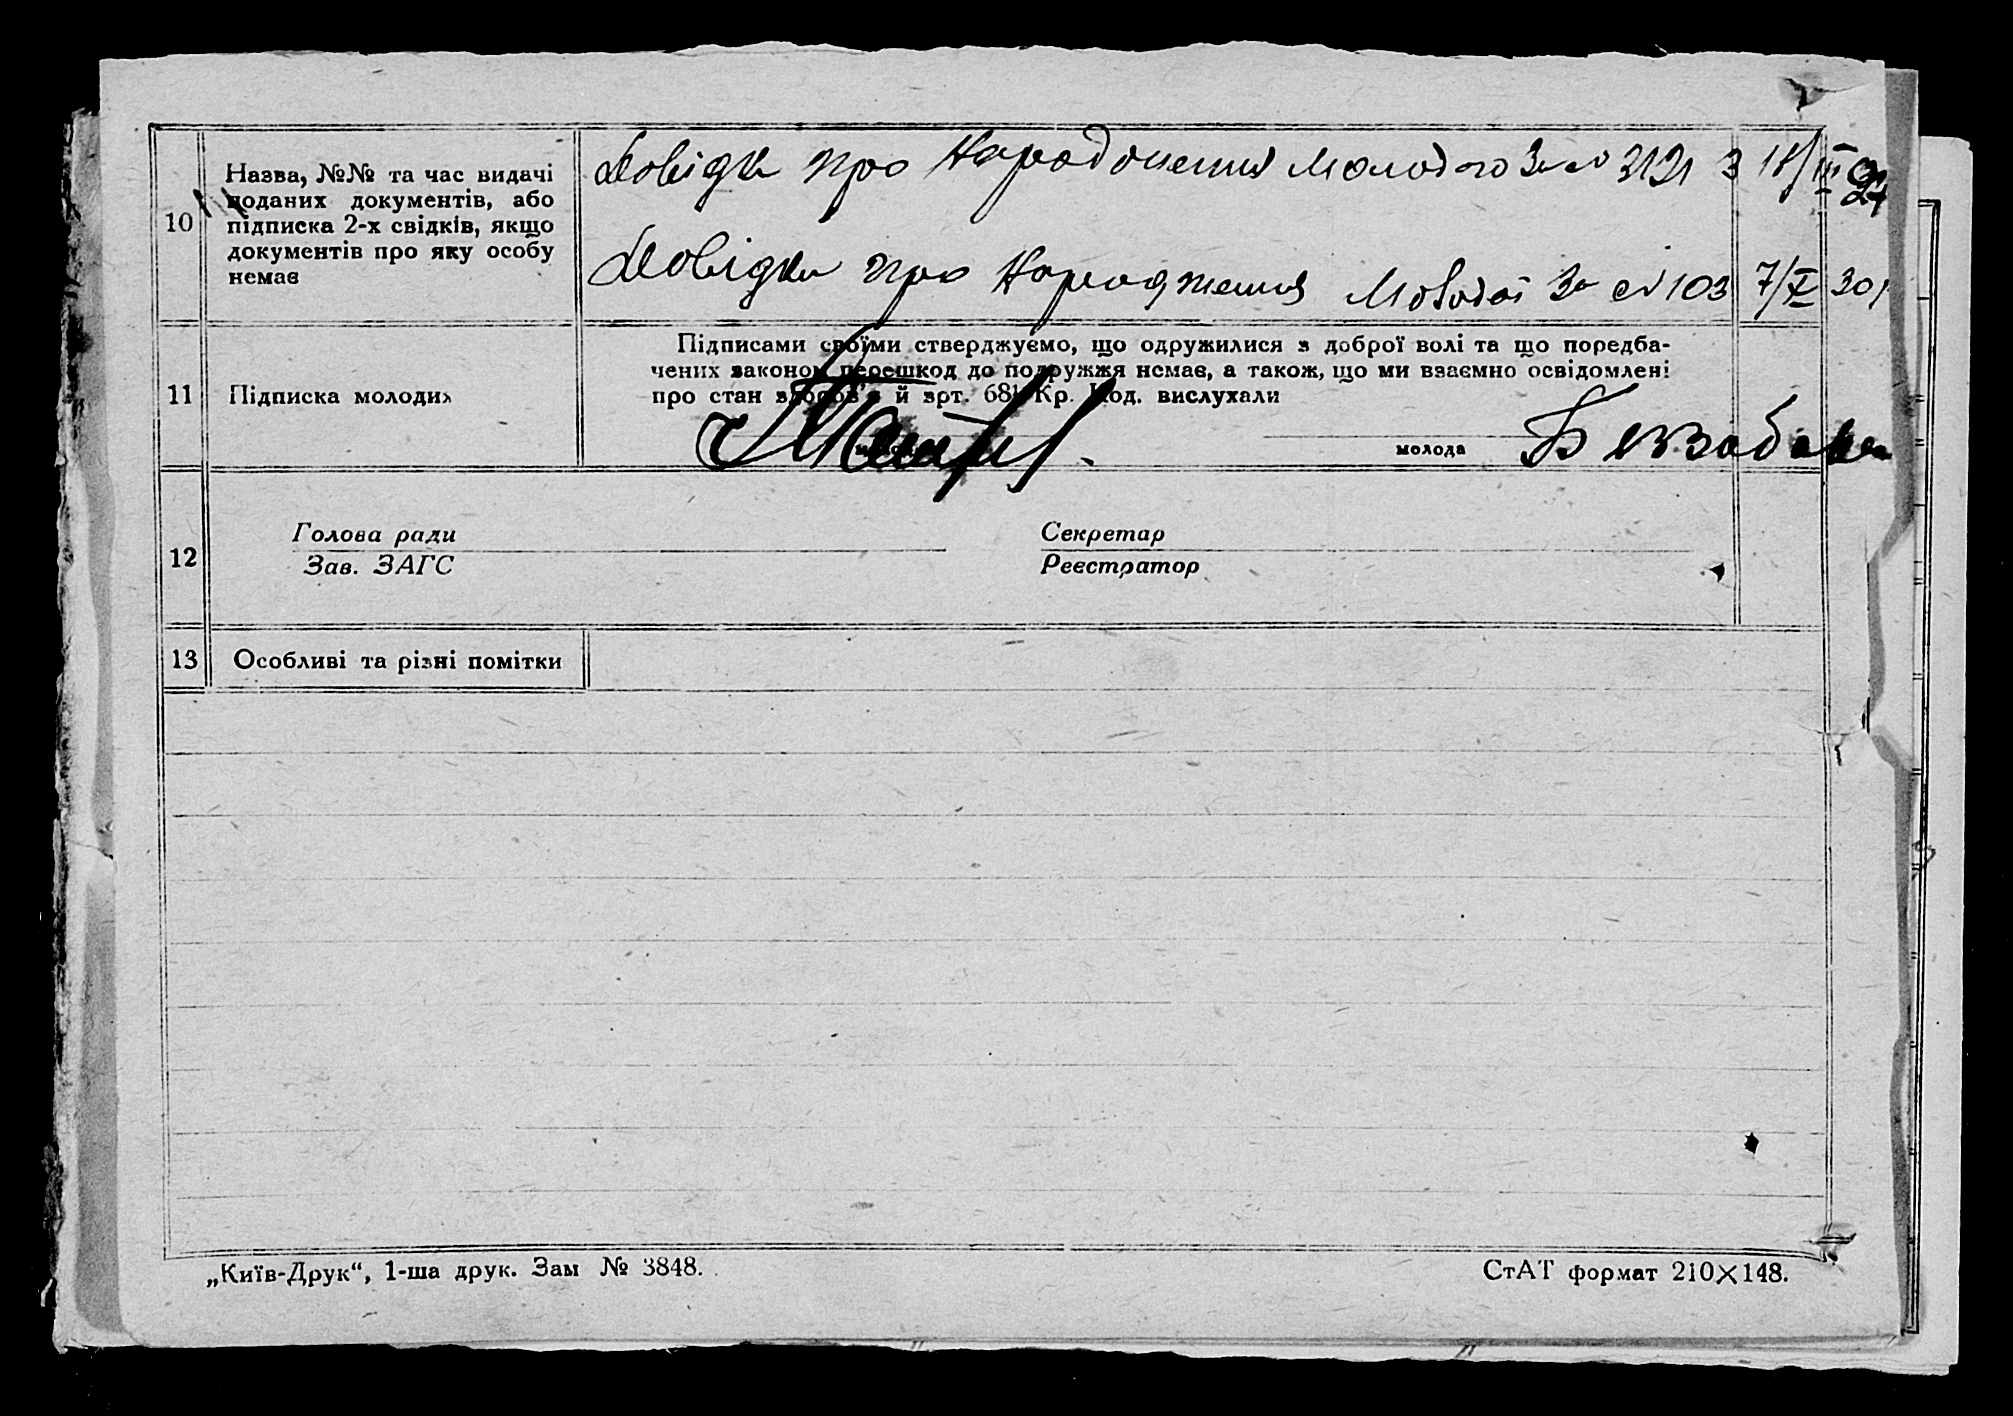 10 Назва, №№ та час видачі
поданих документів, або
підписка 2-х свідків, якщо
документів про яку особу
немає
Довідка про народження молодого за № 3121 з 18/III
Довідка про народження молодої за № 103 7/X 30
11 Підписка молодих
Підписами своїми стверджуємо, що одружилися з доброї волі та що поредба-
чених законом перешкод до подружжя немає, а також, що ми взаємно освідомлені
про стан здоров'я й арт. Кр. Код. вислухали
молода
12 Голова ради Секретар
Зав. ЗАГС Реєстратор
13 Особливі та різні помітки
„Київ-Друк“, 1-ша друк. Зам № 3848. СтАТ формат 210×148.